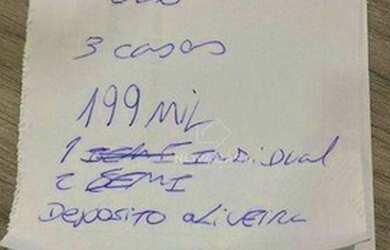 3 casas
199 MIL
1 INDIDUAL
2 SEMI
DEPOSITO OLIVEIRA